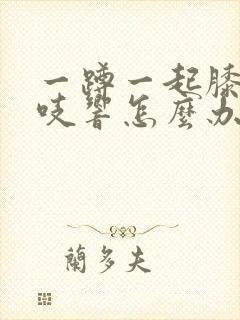 一蹲一起膝
吱響怎麼
蘭多夫